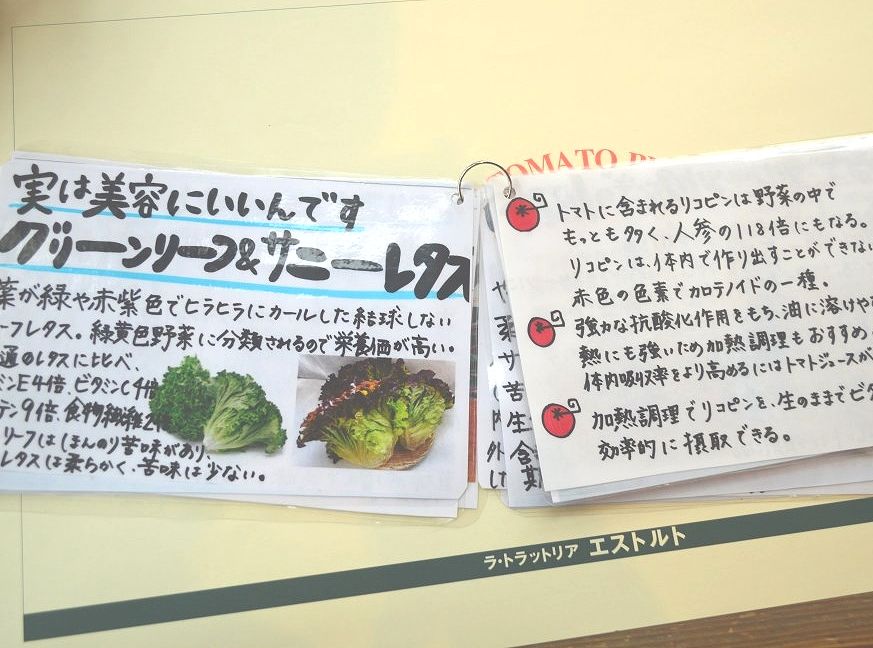 実は美容にいいんです
グリーンリーフ&サニーレタス
葉が緑や赤紫色でヒラヒラにカールした結球しない
ーフレタス。緑黄色野菜に分類されるので栄養価が高い。
通のレタスに比べ、
ミンE4倍、ビタミンC4倍
テン9倍、食物繊維2倍
リーフはほんのり苦味があり、
レタスは柔らかく、苦味は少ない。
TOMATO
トマトに含まれるリコピンは野菜の中で
もっとも多く、人参の118倍にもなる。
リコピンは、体内で作り出すことができない
赤色の色素でカロテノイドの一種。
強力な抗酸化作用をもち、油に溶けや
熱にも強いため加熱調理もおすすめ
体内吸収率をより高めるにはトマトジュースが
加熱調理でリコピンを、生のままでビタ
効率的に摂取できる。
ラ・トラットリア エストルト